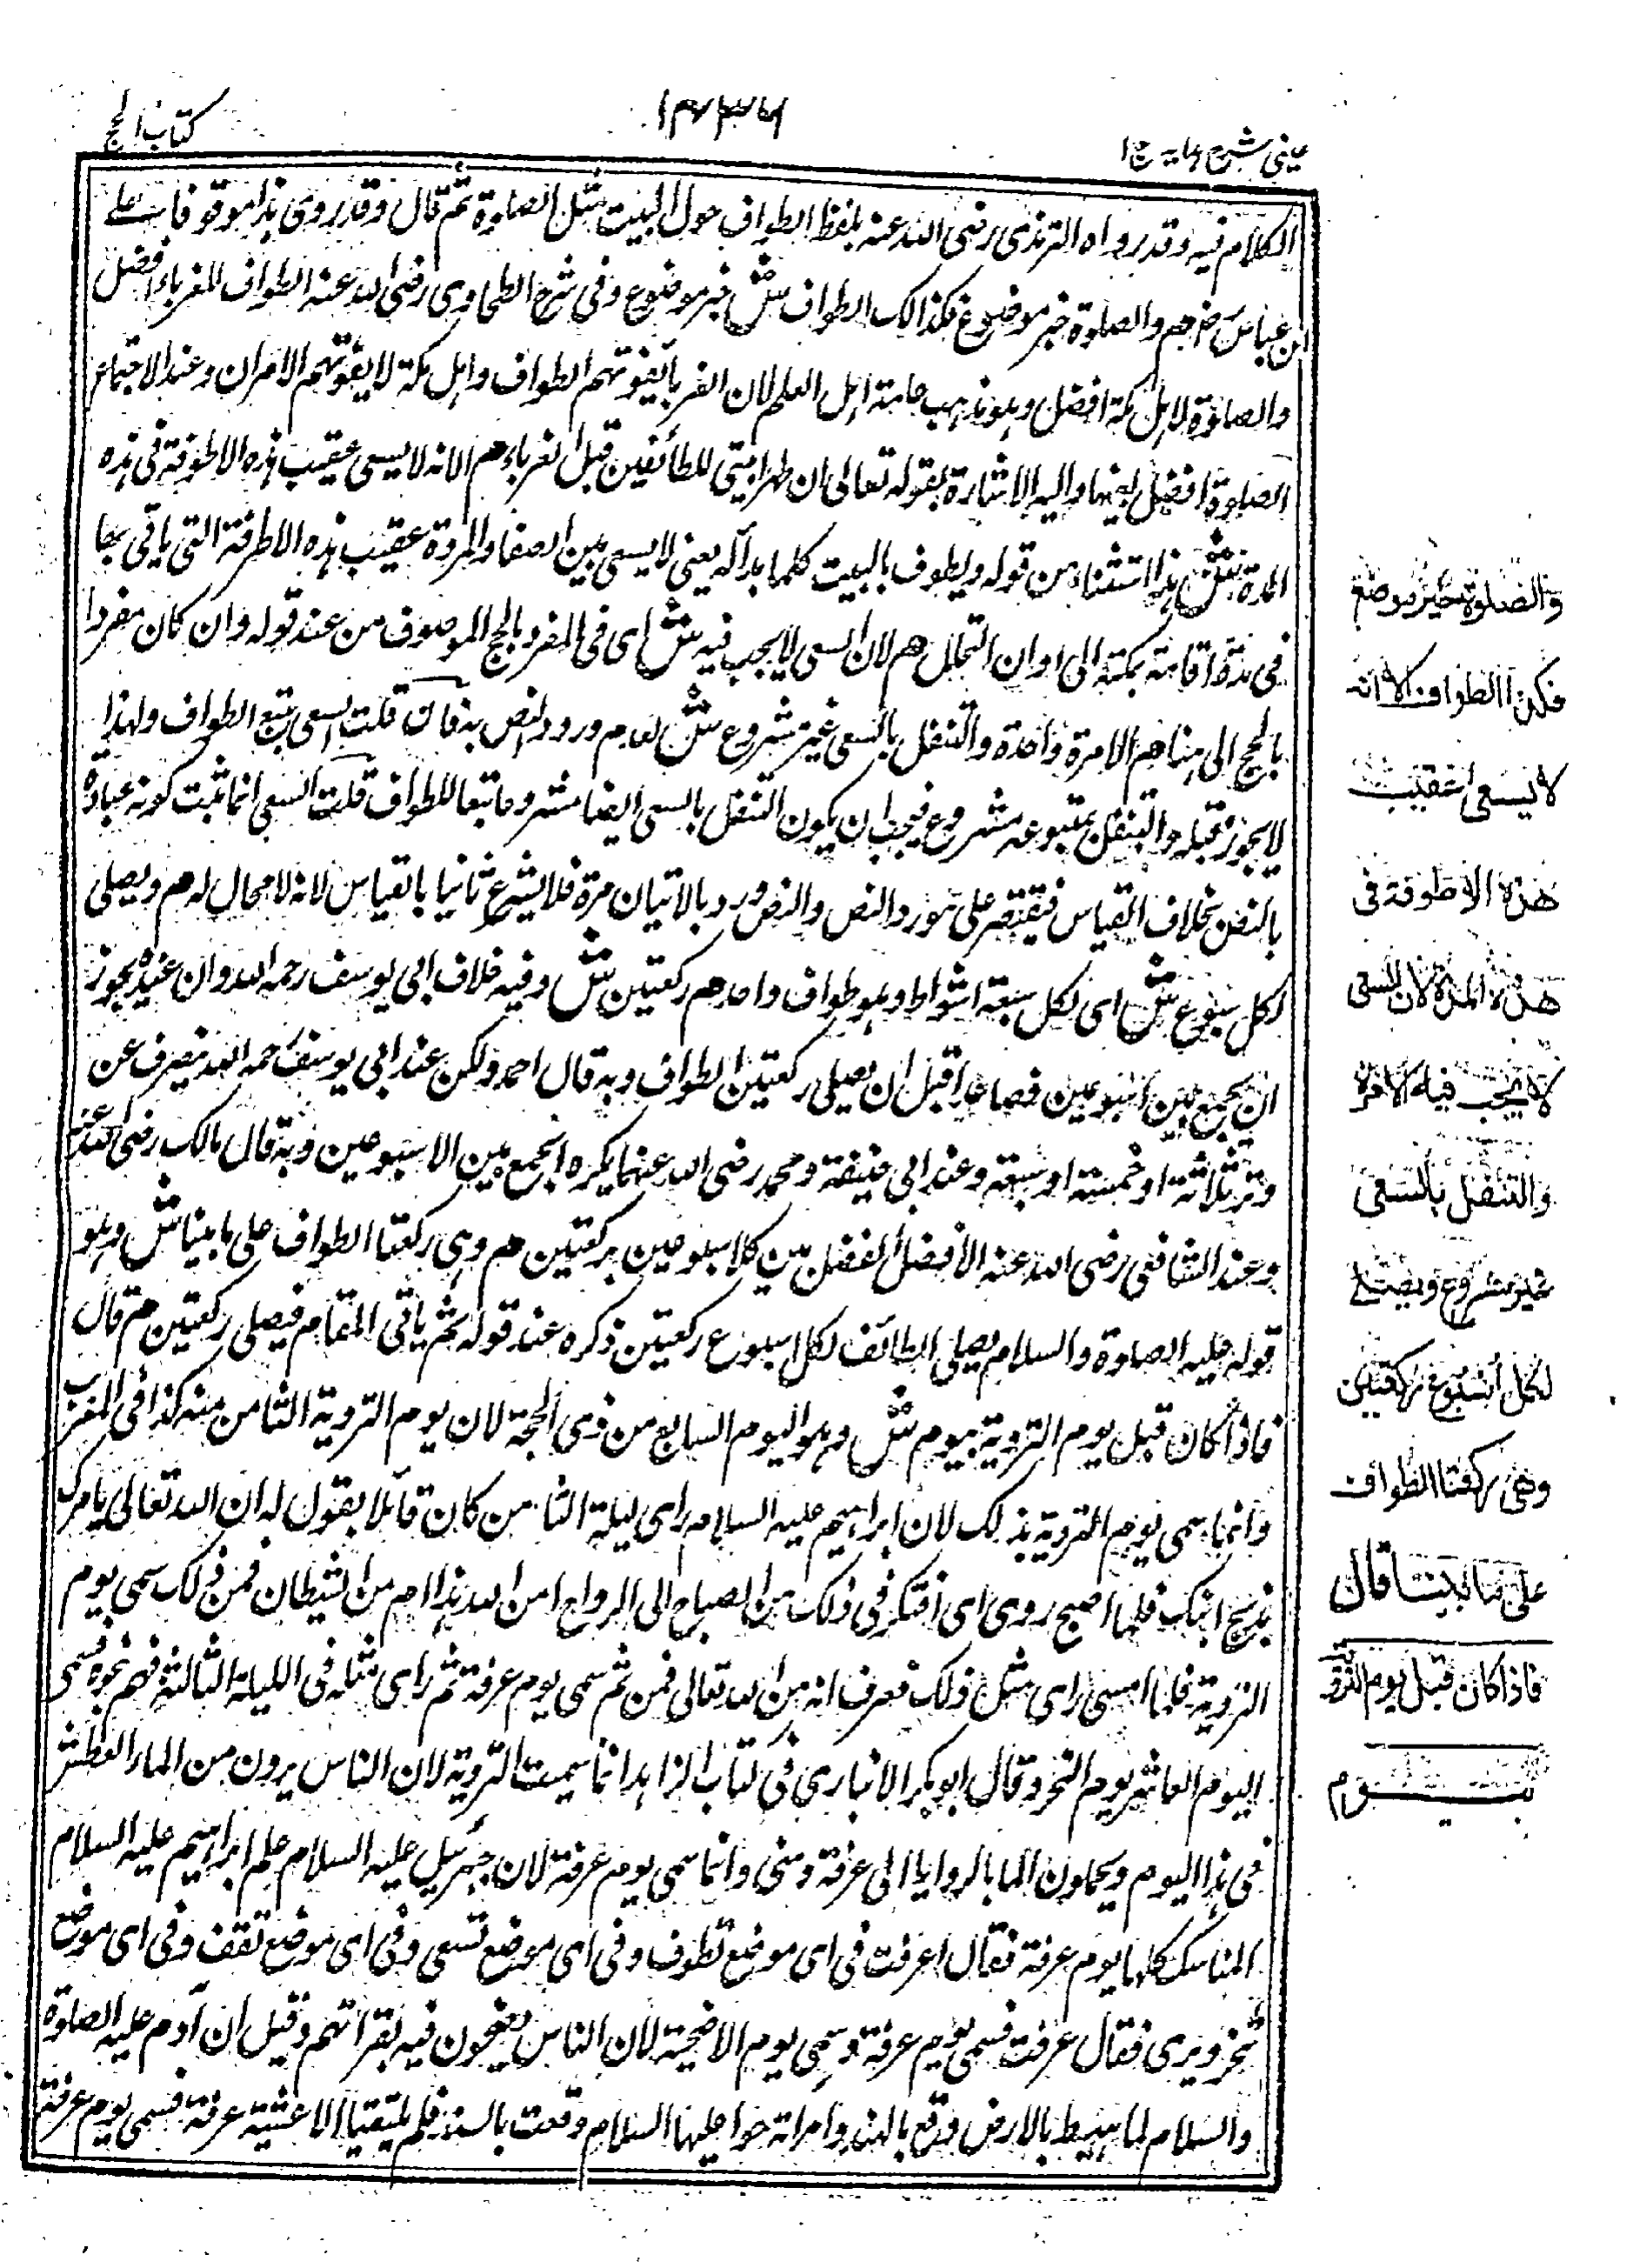 عینی شرح هدایة ج ١
١٤٣٦
کتاب الحج
الکلام فیه وقد رواه الترمذی رضی الله عنه بلفظ الطواف حول البیت مثل الصلوة ثم قال وقد روی هذا موقوفا علی
ابن عباس هم والصلوة خیر موضوع فکذا لک الطواف ش خیر موضوع وفی شرح الطحاوی رضی الله عنه الطواف للغرباء افضل
والصلوة لاهل مکة افضل وهو مذهب عامة اهل العلم لان الغرباء یفوتهم الطواف واهل مکة لا یفوتهم الامران وعند الاجتماع
الصلوة افضل والیه الاشارة بقوله تعالی ان طهرا بیتی للطائفین قبل الغرباء هم الا انه لا یسعی عقیب هذه الاطوفة فی هذه
المدة ش هذا استثناء من قوله ویطوف بالبیت کلما بدا له یعنی لا یسعی بین الصفا والمروة عقیب هذه الاطوفة التی یاتی بها
فی مدة اقامته بمکة الی اوان التحلل هم لان السعی لا یجب فیه ش ای فی المفرد بالحج الموصوف من عند قوله وان کان مفردا
بالحج الی هنا هم الا مرة واحدة والتنفل بالسعی غیر مشروع ش لعدم ورود النص به فان قلت السعی یتبع الطواف ولهذا
لا یجوز قبله والتنفل بمتبوعه مشروع فیجب ان یکون التنفل بالسعی ایضا مشروعا تبعا للطواف قلت السعی انما ثبت کونه عبادة
بالنص بخلاف القیاس فیقتصر علی مورد النص والنص ورد بالاتیان مرة فلا یشرع ثانیا بالقیاس لانه لا مجال له هم ویصلی
لکل سبوع ش ای لکل سبعة اشواط وهو طواف واحد هم رکعتین ش وفیه خلاف ابی یوسف رحمه الله وان عنده یجوز
ان یجمع بین اسبوعین فصاعدا قبل ان یصلی رکعتین الطواف وبه قال احمد ولکن عند ابی یوسف رحمه الله ینصرف عن
وتر ثلاثة او خمسة او سبعة وعند ابی حنیفة ومحمد رضی الله عنهما یکره الجمع بین الاسبوعین وبه قال مالک رضی الله عنه
وعند الشافعی رضی الله عنه الافضل بین کل اسبوعین برکعتین هم وهی رکعتا الطواف علی ما بینا ش وهو
قوله علیه الصلوة والسلام یصلی الطائف لکل اسبوع رکعتین ذکره عند قوله ثم یاتی المقام فیصلی رکعتین هم قال
فاذا کان قبل یوم الترویة بیوم ش وهو الیوم السابع من ذی الحجة لان یوم الترویة الثامن منه کذا فی المغرب
وانما سمی یوم الترویة بذلک لان ابراهیم علیه السلام رای لیلة الثامن کان قائلا یقول له ان الله تعالی یامرک
بذبح ابنک فلما اصبح روی ای افتکر فی ذلک من الصباح الی الرواح امن الله هذا ام من الشیطان فمن ذلک سمی یوم
الترویة فلما امسی رای مثل ذلک فعرف انه من الله تعالی فمن ثم سمی یوم عرفة ثم رای مثله فی اللیلة الثالثة فهم نحوه فسمی
الیوم العاشر یوم النحر وقال ابوبکر الانباری فی کتاب الزاهد انما سمیت الترویة لان الناس یروون من الماء العطش
فی هذا الیوم ویحملون الما بالروایا الی عرفة ومنی وانما سمی یوم عرفة لان جبرئیل علیه السلام علم ابراهیم علیه السلام
المناسک کلها یوم عرفة فقال اعرفت فی ای موضع تطوف وفی ای موضع تسعی وفی ای موضع تقف وفی ای موضع
تنحر وترمی فقال عرفت فسمی یوم عرفة وسمی یوم الاضحیة لان الناس یضحون فیه وقیل ان آدم علیه الصلوة
والسلام لما هبط بالارض وقع بالهند وامراته حوا علیها السلام وقعت بالسند فلم یلتقیا الا عشیة عرفة فسمی یوم عرفة
والصلوة خیر موضوع
فکذا الطواف الا انه
لا یسعی عقیب
هذه الاطوفة فی
هذه المدة لان السعی
لا یجب فیه الا مرة
والتنفل بالسعی
غیر مشروع ویصلی
لکل اسبوع رکعتین
وهی رکعتا الطواف
علی ما بینا قال
فاذا کان قبل یوم الترویة
بیوم